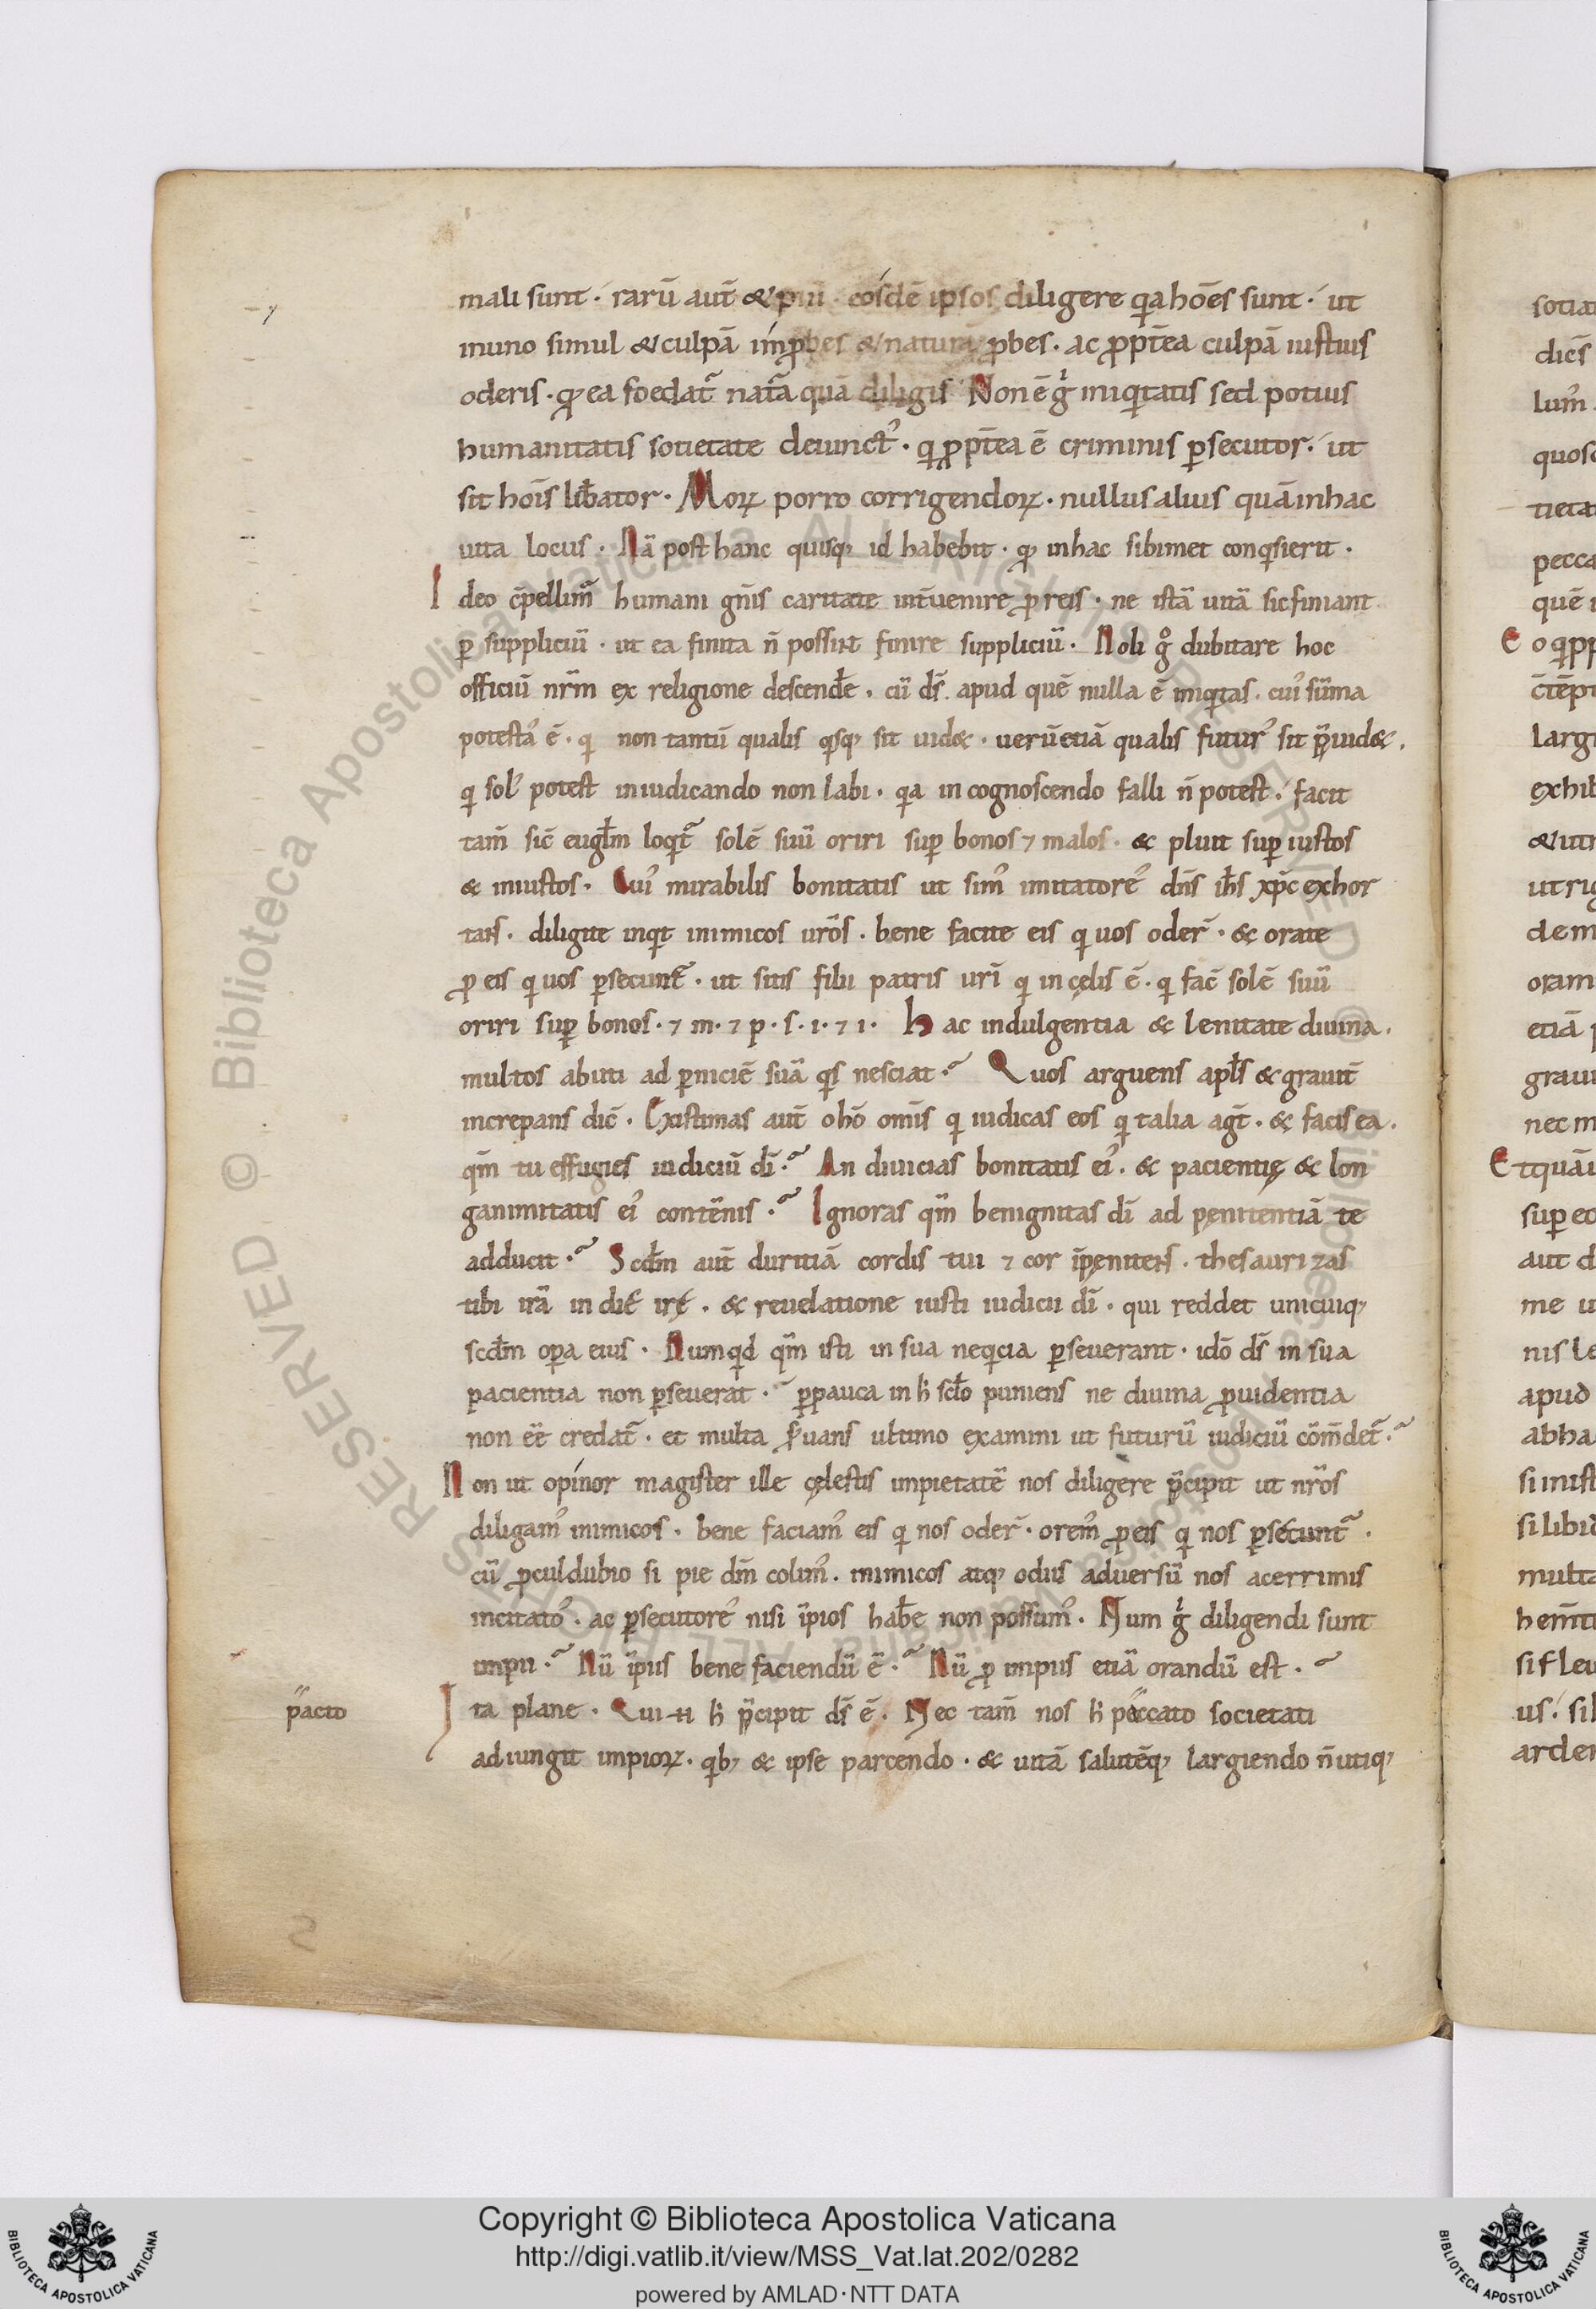 mali sunt · rarū aut̄ & piū · eosdē ipsos diligere qa hōes sunt · ut
inuno simul & culpā improbes & naturā ꝓbes · ac ꝓpt̄ea culpā iustius
oderis · qđ ea foedat᷑ nat̄a quā diligis Non ē gͥ iniqͥtatis sed potius
humanitatis sotietate deuinctꝰ · qͥ ꝓpt̄ea ē criminis ꝑsecutor · ut
sit hoīs lib̄ator · Moꝝ porro corrigendoꝝ · nullus alius quā inhac
uita locus · Nā post hanc quisqꝫ id habebit · qđ inhac sibimet conqͥsierit ·
Ideo c͞pellim᷑ humani gn̄is caritate int̄uenire ꝓ reis · ne istā uitā sic finiant
ꝑ suppliciū · ut ea finita n̄ possint finire suppliciū · Noli gͦ dubitare hoc
officiū nr̄m ex religione descend̄e · cū ds̄ apud quē nulla ē iniqͥtas · cuiꝰ sūma
potestas ē · qͥ non tantū qualis qͥsqꝫ sit uid& · uerū etiā qualis futurꝰ sit p̄uid& ·
qͥ solꝰ potest in iudicando non labi · qa in cognoscendo falli n̄ potest · facit
tam̄ sic̄ eugl̄m loqt᷑ solē suū oriri suꝑ bonos ⁊ malos · & pluit suꝑ iustos
& iniustos · Cuiꝰ mirabilis bonitatis ut simꝰ imitatores dn̄s ih̄s xp̄c exhor
tans · diligite inqͥt inimicos ur̄os · bene facite eis qͥ uos oder̄ · & orate
ꝓ eis qͥ uos ꝑsecunt᷑ · ut sitis filii patris ur̄i qͥ in cęlis ē · qͥ fac̄ solē suū
oriri suꝑ bonos · ⁊ m · ⁊ p · s · i · ⁊ i · Hac indulgentia & lenitate diuina ·
multos abuti ad ꝑniciē suā qͥs nesciat · Quos arguens apl̄s & grauit̄
increpans dic̄ · Existimas aut̄ o hō omīs qͥ iudicas eos qͥ talia agt̄ · & facis ea ·
qm̄ tu effugies iudiciū dī · An diuicias bonitatis eiꝰ · & pacientię & lon
ganimitatis eiꝰ contēnis · Ignoras qm̄ benignitas dī ad pęnitentiā te
adducit · Scd̄m aut̄ duritiā cordis tui ⁊ cor īpęnitens · thesaurizas
tibi irā in die irę · & reuelatione iusti iudicii dī · qui reddet unicuiqꝫ
scd̄m oꝑa eius · Numqͥd qm̄ isti in sua neqͥcia ꝑseuerant · idō ds̄ in sua
pacientia non ꝑseuerat · ꝑpauca in h̄ sc̄lo puniens ne diuina ꝓuidentia
non ēē credat᷑ · et multa s̄uans ultimo examini ut futurū iudiciū cōm̄det ·
Non ut opinor magister ille cęlestis impietatē nos diligere p̄cipit ut nr̄os
diligamꝰ inimicos · bene faciamꝰ eis qͥ nos oder̄ · oremꝰ ꝓ eis qͥ nos ꝑsecunt᷑ ·
cū ꝓculdubio si pie dm̄ colimꝰ · inimicos atqꝫ odiis aduersū nos acerrimis
incitatos · ac ꝑsecutores nisi īpios hab̄e non possumꝰ · Num gͥ diligendi sunt
impii · Nū īpiis bene faciendū ē · Nū ꝓ impiis etiā orandū est ·
Ita plane · Qui n̄ h̄ p̄cipit ds̄ ē · Nec tam̄ nos h̄ peccato societati
p̄acto
adiungit impioꝝ · qͥbꝫ & ipse parcendo · & uitā salutēqꝫ largiendo n̄ utiqꝫ
Copyright © Biblioteca Apostolica Vaticana
http://digi.vatlib.it/view/MSS_Vat.lat.202/0282
powered by AMLAD·NTT DATA